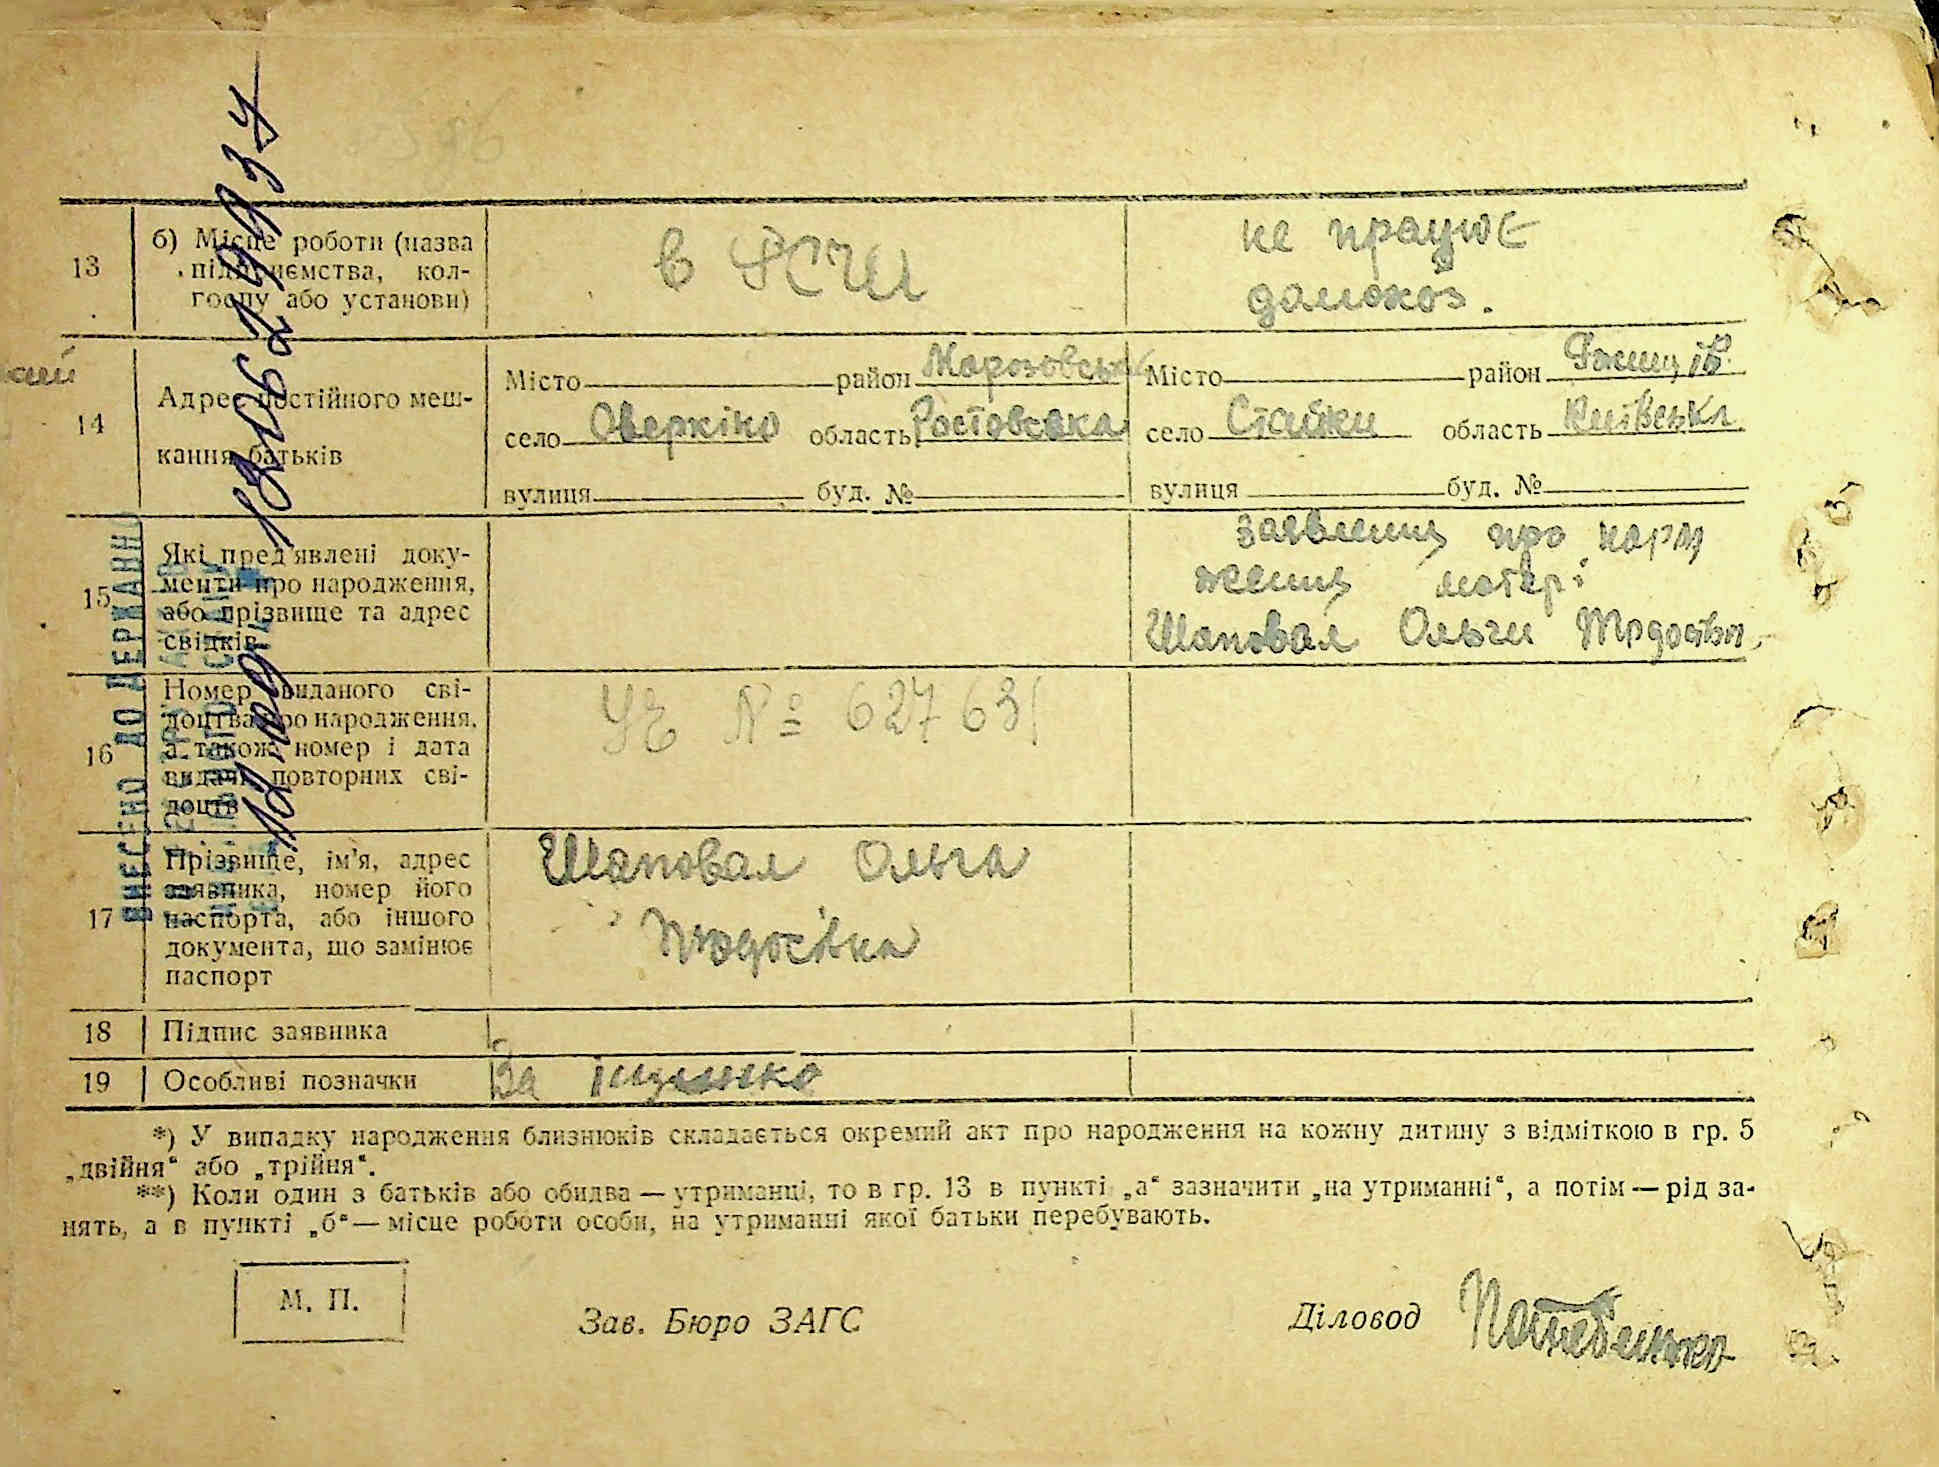 13
б) Місце роботи (назва
підприємства, кол-
госпу або установи)
в
не працює
домохоз.
14
Адрес постійного меш-
кання батьків
Місто район Марозовська
село Аверкіно область Ростовська
вулиця буд. №
Місто район Ржищів.
село Стайки область Київська
вулиця буд. №
15
Які пред'явлені доку-
менти про народження,
або прізвище та адрес
свідків
заявлення про наро
ження матері
Шаповал Ольги
16
Номер виданого сві-
доцтва про народження,
а також номер і дата
видачі повторних сві-
доцтв
УЕ № 627631
17
Прізвище, ім'я, адрес
заявника, номер його
паспорта, або іншого
документа, що замінює
паспорт
Шаповал Ольга
18
Підпис заявника
19
Особливі позначки
За
*) У випадку народження близнюків складається окремий акт про народження на кожну дитину з відміткою в гр. 5
„двійня“ або „трійня“.
**) Коли один з батьків або обидва — утриманці, то в гр. 13 в пункті „а“ зазначити „на утриманні“, а потім — рід за-
нять, а в пункті „б“ — місце роботи особи, на утриманні якої батьки перебувають.
М. П.
Зав. Бюро ЗАГС
Діловод
ВНЕСЕНО ДО ДЕРЖАВН